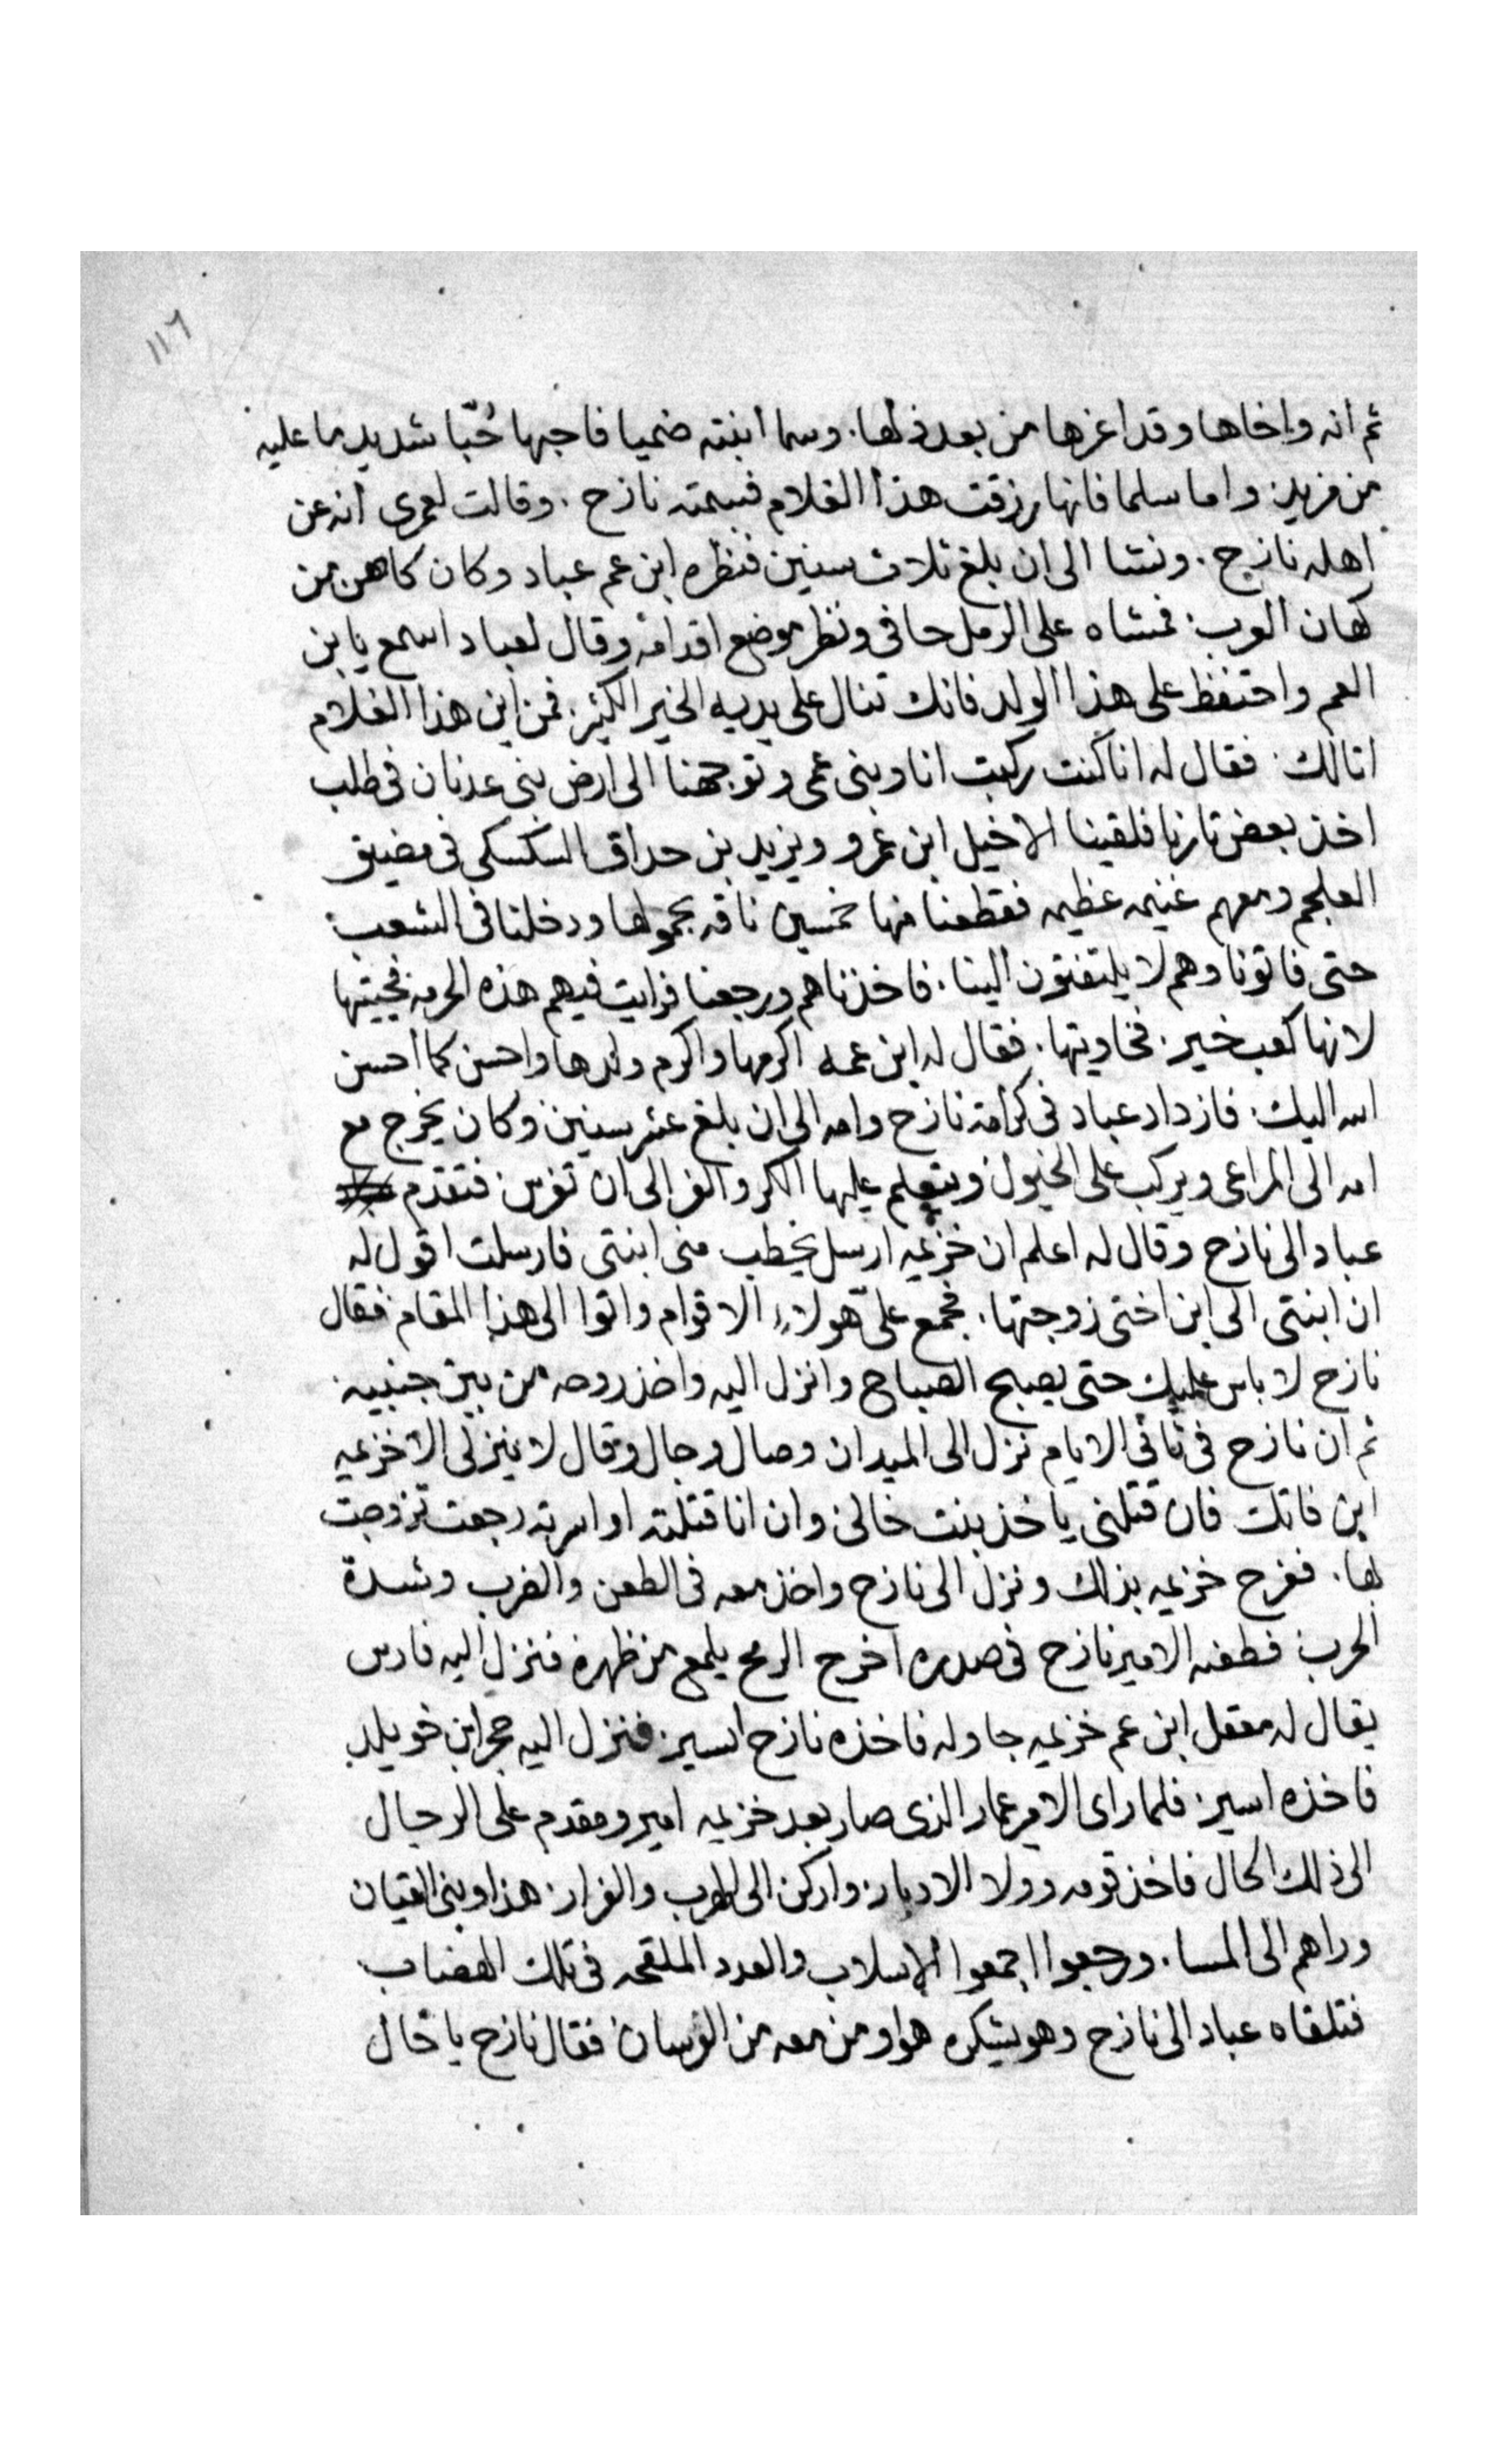 ١١٦
ثم انه واخاها وقد اعزها من بعد ذلها. وسما ابنته ضميا فاحبها حُبّا شديد ما عليه
من مزيد. واما سلما فانها رزقت هذا الغلام فسمته نازح. وقالت لعمرى انه عن
اهله نازح. ونشا الى ان بلغ ثلاث سنين فنظره ابن عم عباد وكان كاهن من
كهان العرب. فمشاه على الرمل حافى ونظر موضع اقدامه وقال لعباد اسمع يا بن
العم واحتفظ على هذا الولد فانك تنال على يديه الخير الكثير. فمن اين هذا الغلام
اتا لك. فقال له انا كنت ركبت انا وبنى عمى وتوجهنا الى ارض بنى عدنان فى طلب
اخذ بعض تارنا فلقينا الاخيل ابن عمرو ويزيد بن حداق السكسكى فى مضيق
العلجم ومعهم غنيمه عظيمه فقطعنا منها خمسين ناقه بحمولها ودخلنا فى الشعب
حتى فاتونا وهم لا يلتفتون الينا. فاخذناهم ورجعنا فرايت فيهم هذه الحرمه فجيتها
لانها كعب خير. فخاويتها. فقال له ابن عمه اكرمها واكرم ولدها واحسن كما احسن
الله اليك. فازداد عباد فى كرامة نازح وامه الى ان بلغ عشر سنين وكان يخرج مع
امه الى المراعى ويركب على الخيول ويتعلم عليها الكر والفر الى ان تفرس فتقدم
عباد الى نازح وقال له اعلم ان خزيمه ارسل يخطب منى ابنتى فارسلت اقول له
ان ابنتى الى ابن اختى زوجتها. فجمع علىّ هولاء الاقوام واتوا الى هذا المقام فقال
نازح لا باس عليك حتى يصبح الصباح وانزل اليه واخذ روحه من بين جنبيه.
ثم ان نازح فى ثانى الايام نزل الى الميدان وصال وجال وقال لا ينزلى الا خزيمه
ابن فاتك فان قتلنى ياخذ بنت خالى وان انا قتلته او اسرته رجعت تزوجت
بها. ففرح خزيمه بذلك ونزل الى نازح واخذ معه فى الطعن والضرب وشدة
الحرب فطعنه الامير نازح فى صدره اخرج الرمح يلمع من ظهره فنزل اليه فارس
يقال له معقل ابن عم خزيمه جاوله فاخذه نازح اسير. فنزل اليه حجر ابن خويلد
فاخذه اسير. فلما راى الامير عمار الذى صار بعد خزيمه امير ومقدم على الرجال
الى ذلك الحال فاخذ قومه وولا الادبار. واركن الى الهرب والفرار. هذا وبنى القيان
وراهم الى المسا. ورجعوا اجمعوا الاسلاب والعدد الملقحه فى تلك الهضاب
فتلقاه عباد الى نازح وهو يشكره هوا ومن معه من الفرسان فقال نازح يا خال